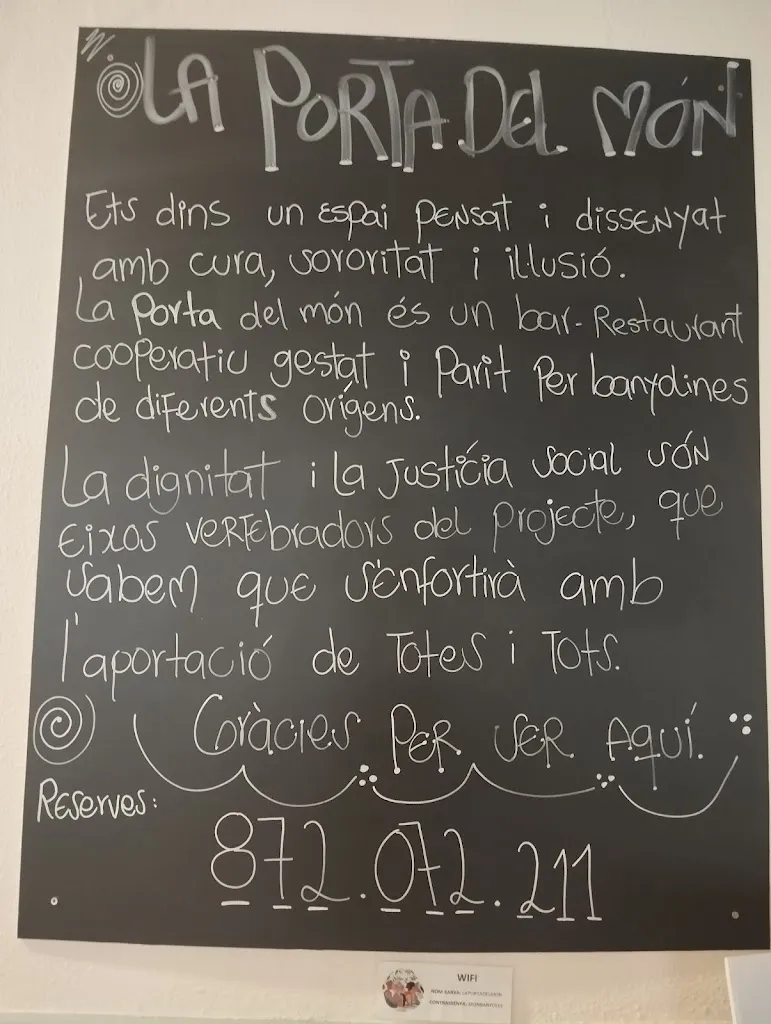 LA PORTA DEL MÓN
Ets dins un espai pensat i dissenyat
amb cura, sororitat i il·lusió.
La Porta del món és un bar-Restaurant
cooperatiu gestat i Parit Per banyolines
de diferents orígens.
La dignitat i la Justícia social són
eixos vertebradors del projecte, que
sabem que s'enfortirà amb
l'aportació de Totes i Tots.
Gràcies PER SER AQUÍ.
Reserves:
872.072.211
WIFI